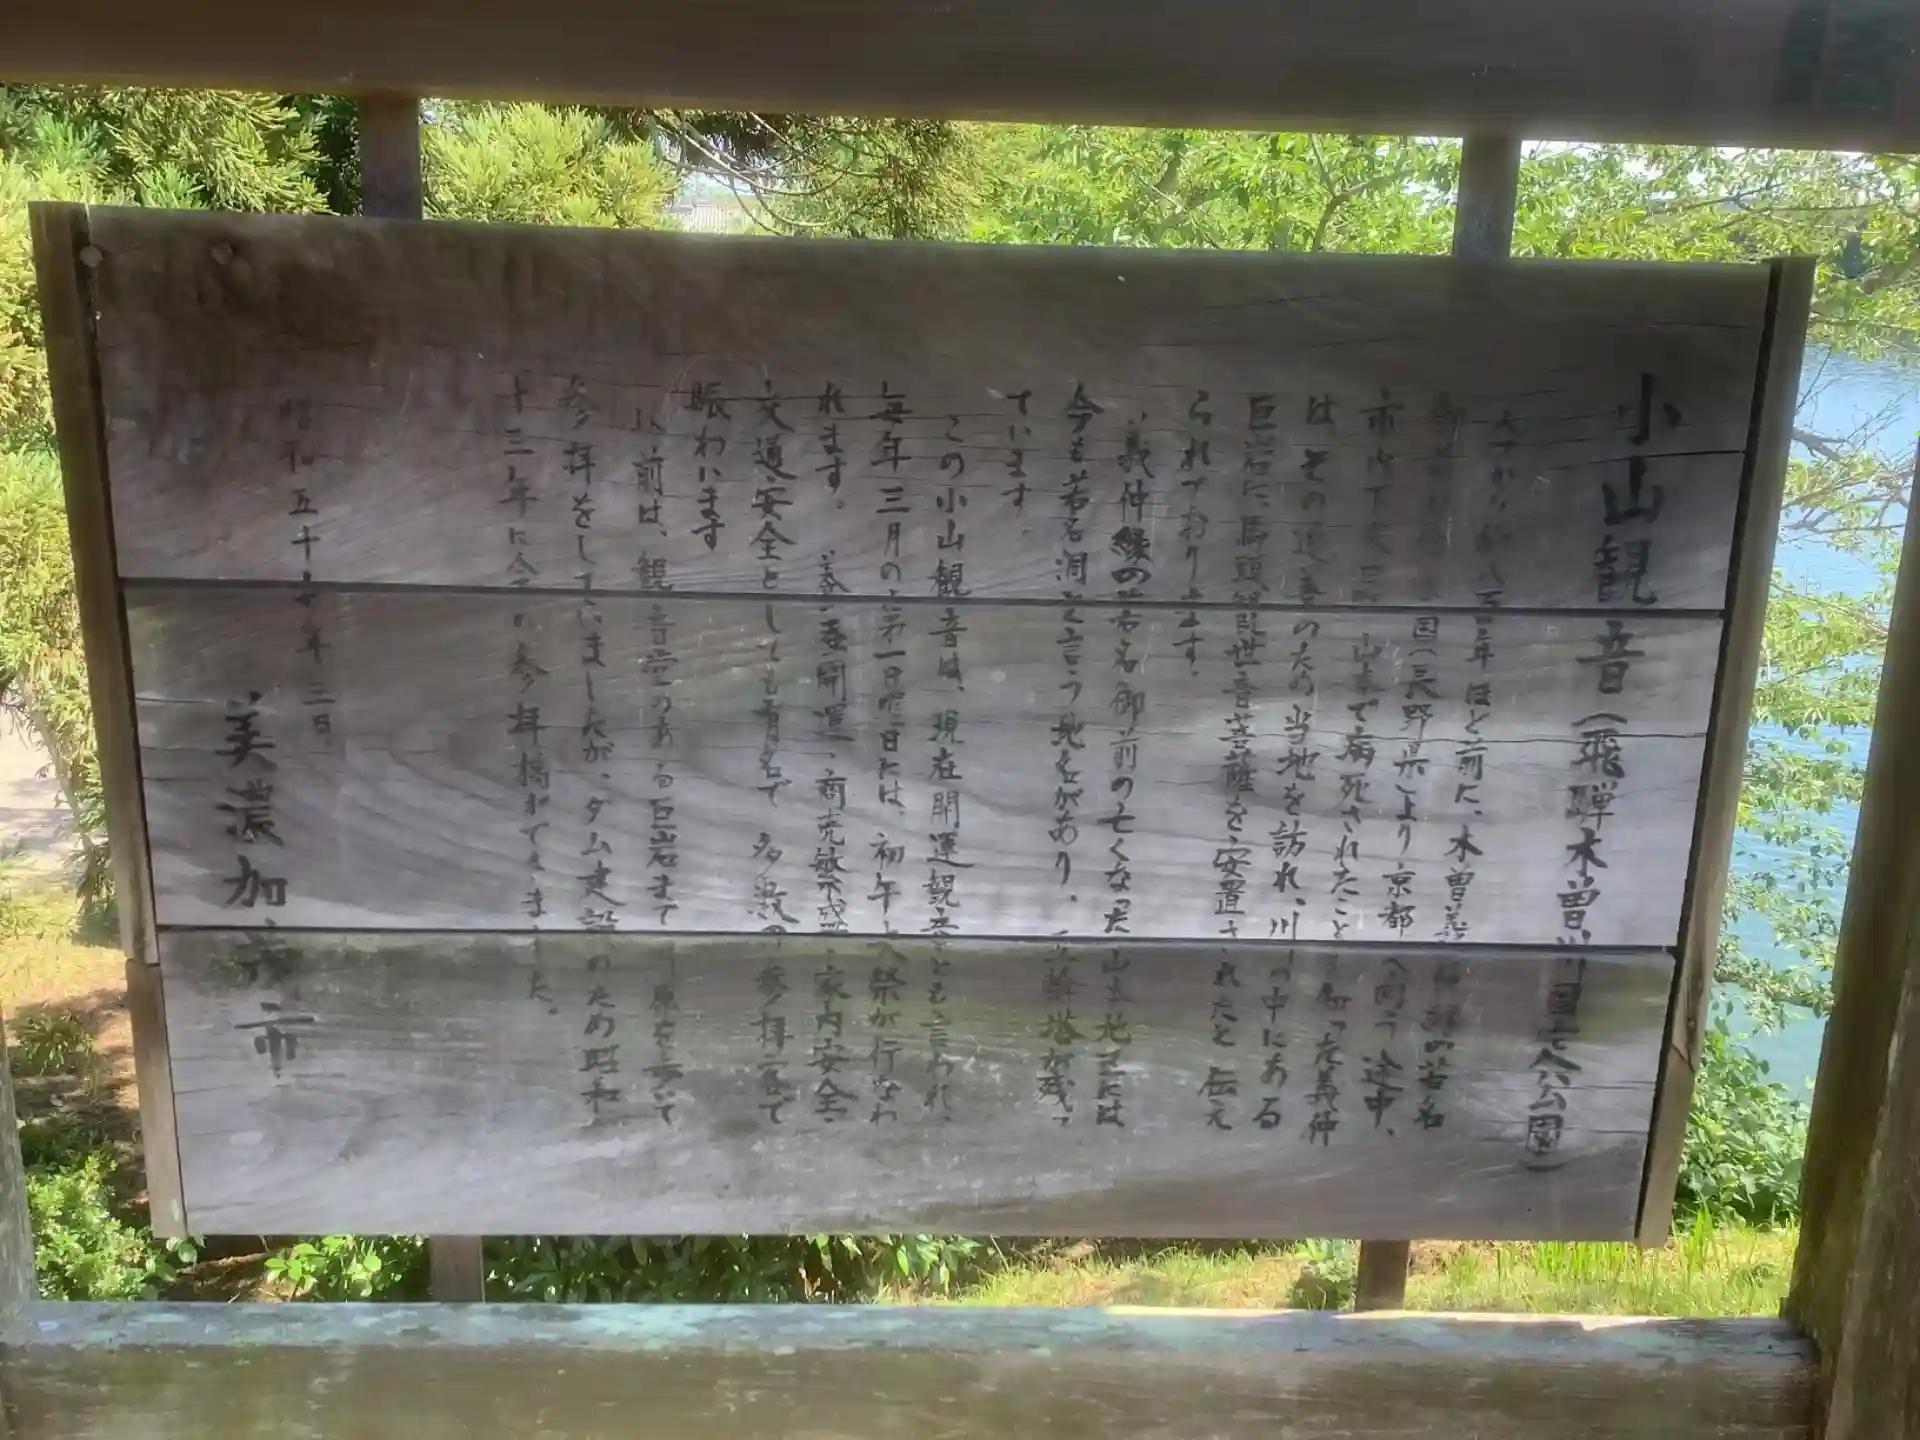 小山観音（飛騨木曽川国定公園）
年ほど前に、木曽義
国（長野県）より京都へ向う途中、
山本で病死されたこと
は、その追善のため当地を訪れ、川の中にある
巨岩に、馬頭観世音菩薩を安置されたと伝え
られております。
義仲縁の若名御前の亡くなった山本地区には
今も若名洞と言う地名があり、五輪塔が残っ
ています。
この小山観音は、現在開運観音とも言われ、
毎年三月の第一日曜日には、初午大祭が行なわ
れます。養蚕、開運、商売繁盛、家内安全、
交通安全としても有名で多数の参拝客で
賑わいます
以前は、観音堂のある巨岩まで川原を歩いて
参拝をしていましたが、ダム建設のため昭和
十三年に今の参拝橋ができました。
昭和五十七年三月
美濃加茂市